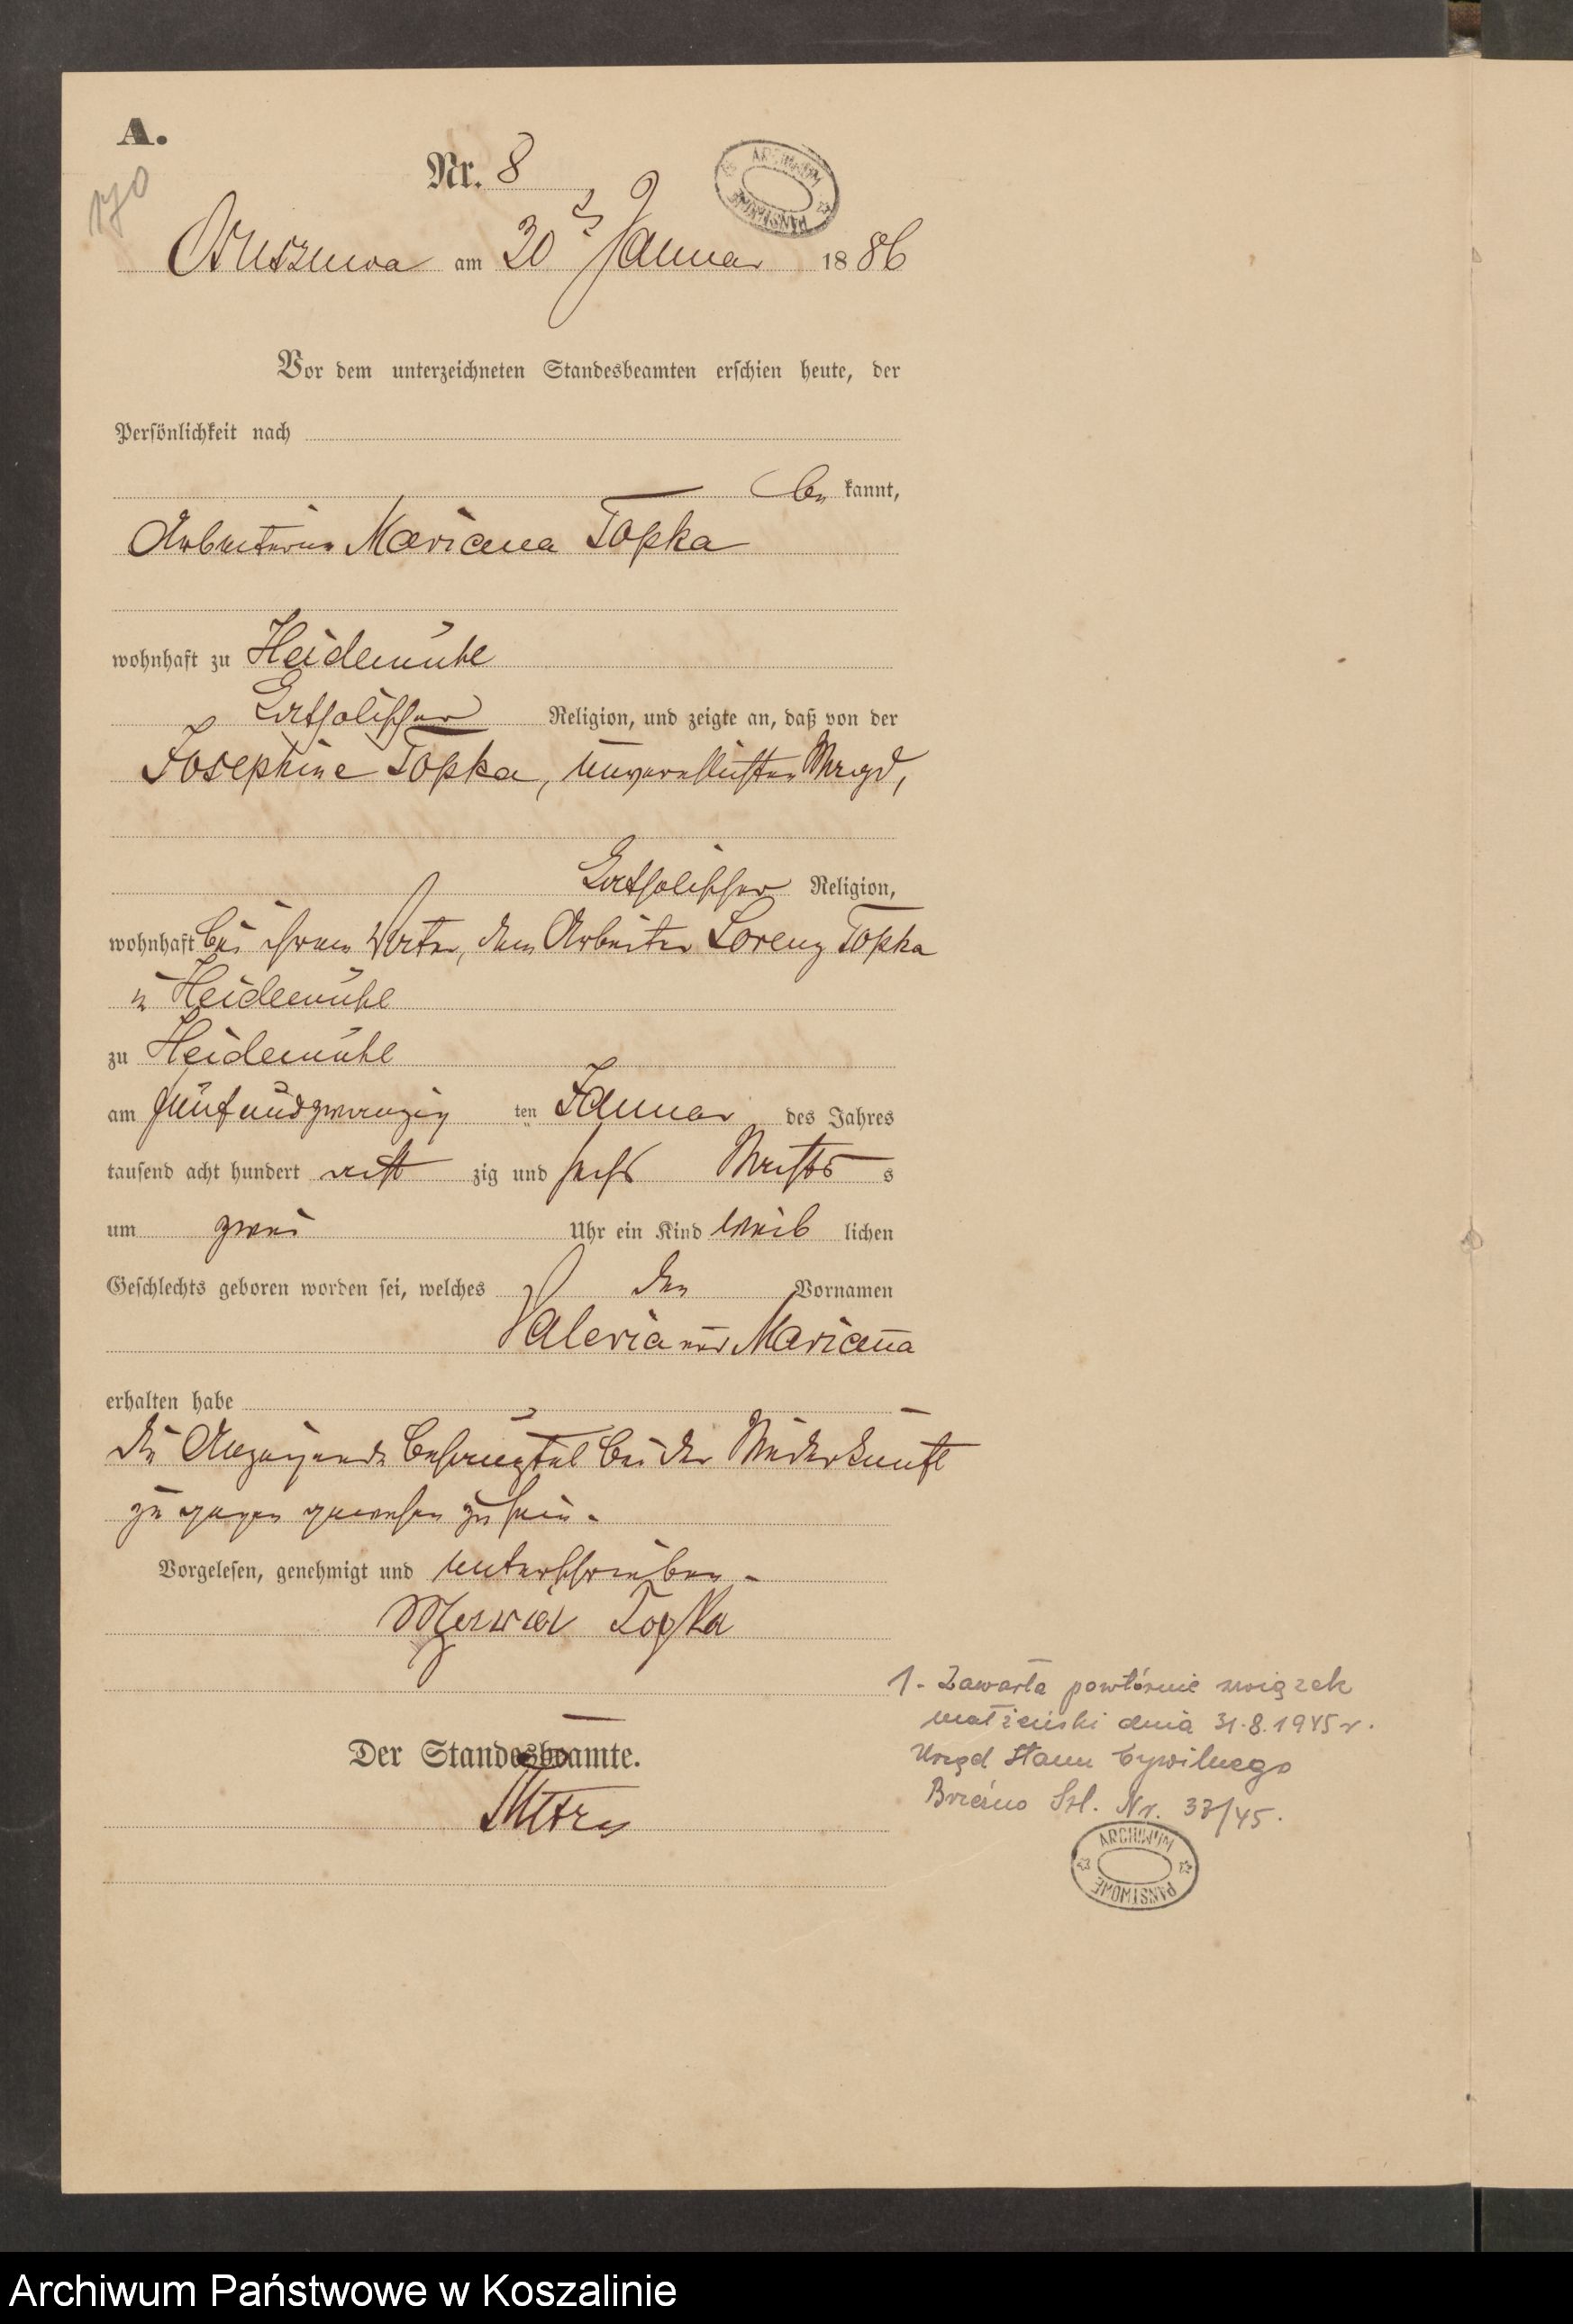 A.
170
Nr. 8
ARCHIWUM PAŃSTWOWE
am 30 Januar 1886
Vor dem unterzeichneten Standesbeamten erschien heute, der
Persönlichkeit nach
be kannt,
Arbeiterin Mariana Topka
wohnhaft zu Heidemühl
katholischer Religion, und zeigte an, daß von der
Josephine Topka, unverehlichten Magd,
katholischer Religion,
wohnhaft bei ihrem Vater, dem Arbeiter Lorenz Topka
in Heidemühl
zu Heidemühl
am fünfundzwanzig ten Januar des Jahres
tausend acht hundert acht zig und sechs Nachts s
um zwei Uhr ein Kind weib lichen
Geschlechts geboren worden sei, welches den Vornamen
Valeria und Marianna
erhalten habe
die Anzeigende bezeugte bei der Niederkunft
zu gegen gewesen zu sein.
Vorgelesen, genehmigt und unterschrieben.
Topka
Der Standesbeamte.
1. Zawarła powtórnie związek
małżeński dnia 31.8.1945 r.
Urząd Stanu Cywilnego
Brzeźno Szl. Nr. 37/45.
ARCHIWUM PAŃSTWOWE
Archiwum Państwowe w Koszalinie